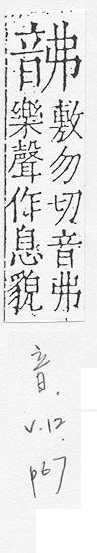 敷勿切音弗
樂聲作息貌
音.
v.12.
p67